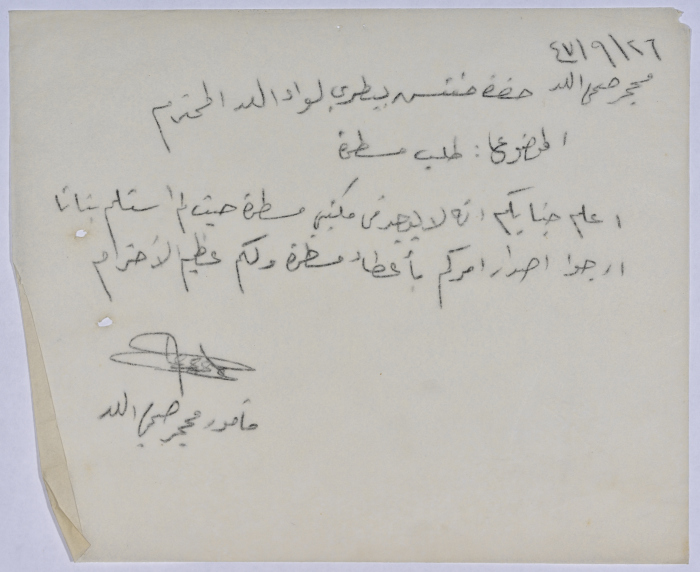 ٤٧/٩/٢٦
محجر صحي اللد
حضرة مفتش بيطري لواء اللد المحترم
الموضوع: طلب مسطرة
اعلم جنابكم انه لا يوجد في مكتبي مسطرة حيث لم استلم بتاتا
ارجوا اصدار امركم بأعطاء مسطرة ولكم عظيم الاحترام
مأمور محجر صحي اللد